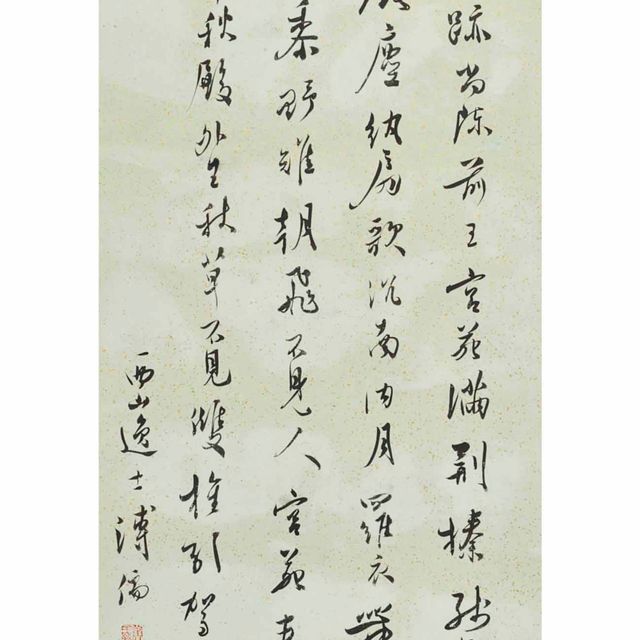 跡尚陳前王宮苑滿荆榛
塵紈扇歌沉南内月羅衣
黍野雉朝飛不見人宮苑
秋殿外生秋草不見雙引駕
西山逸士溥儒